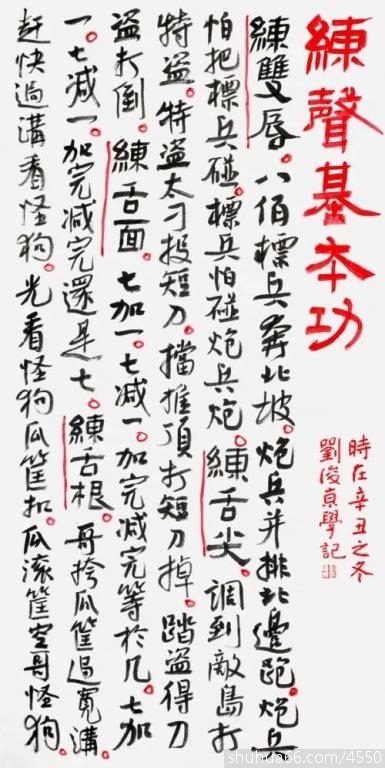 練聲基本功
時在辛丑之冬
劉俊學記
練雙唇。八佰標兵奔北坡。炮兵并排北邊跑。炮兵
怕把標兵碰。標兵怕碰炮兵炮。練舌尖。調到敵島打
特盜。特盜太刁投短刀。擋推頂打短刀掉。踏盜得刀
盜打倒。練舌面。七加一。七減一。加完減完等於几。七加
一。七減一。加完減完還是七。練舌根。哥挎瓜筐過寬溝。
赶快過溝看怪狗。光看怪狗瓜筐扣。瓜滚筐空哥怪狗。
shuhua66.com/4550